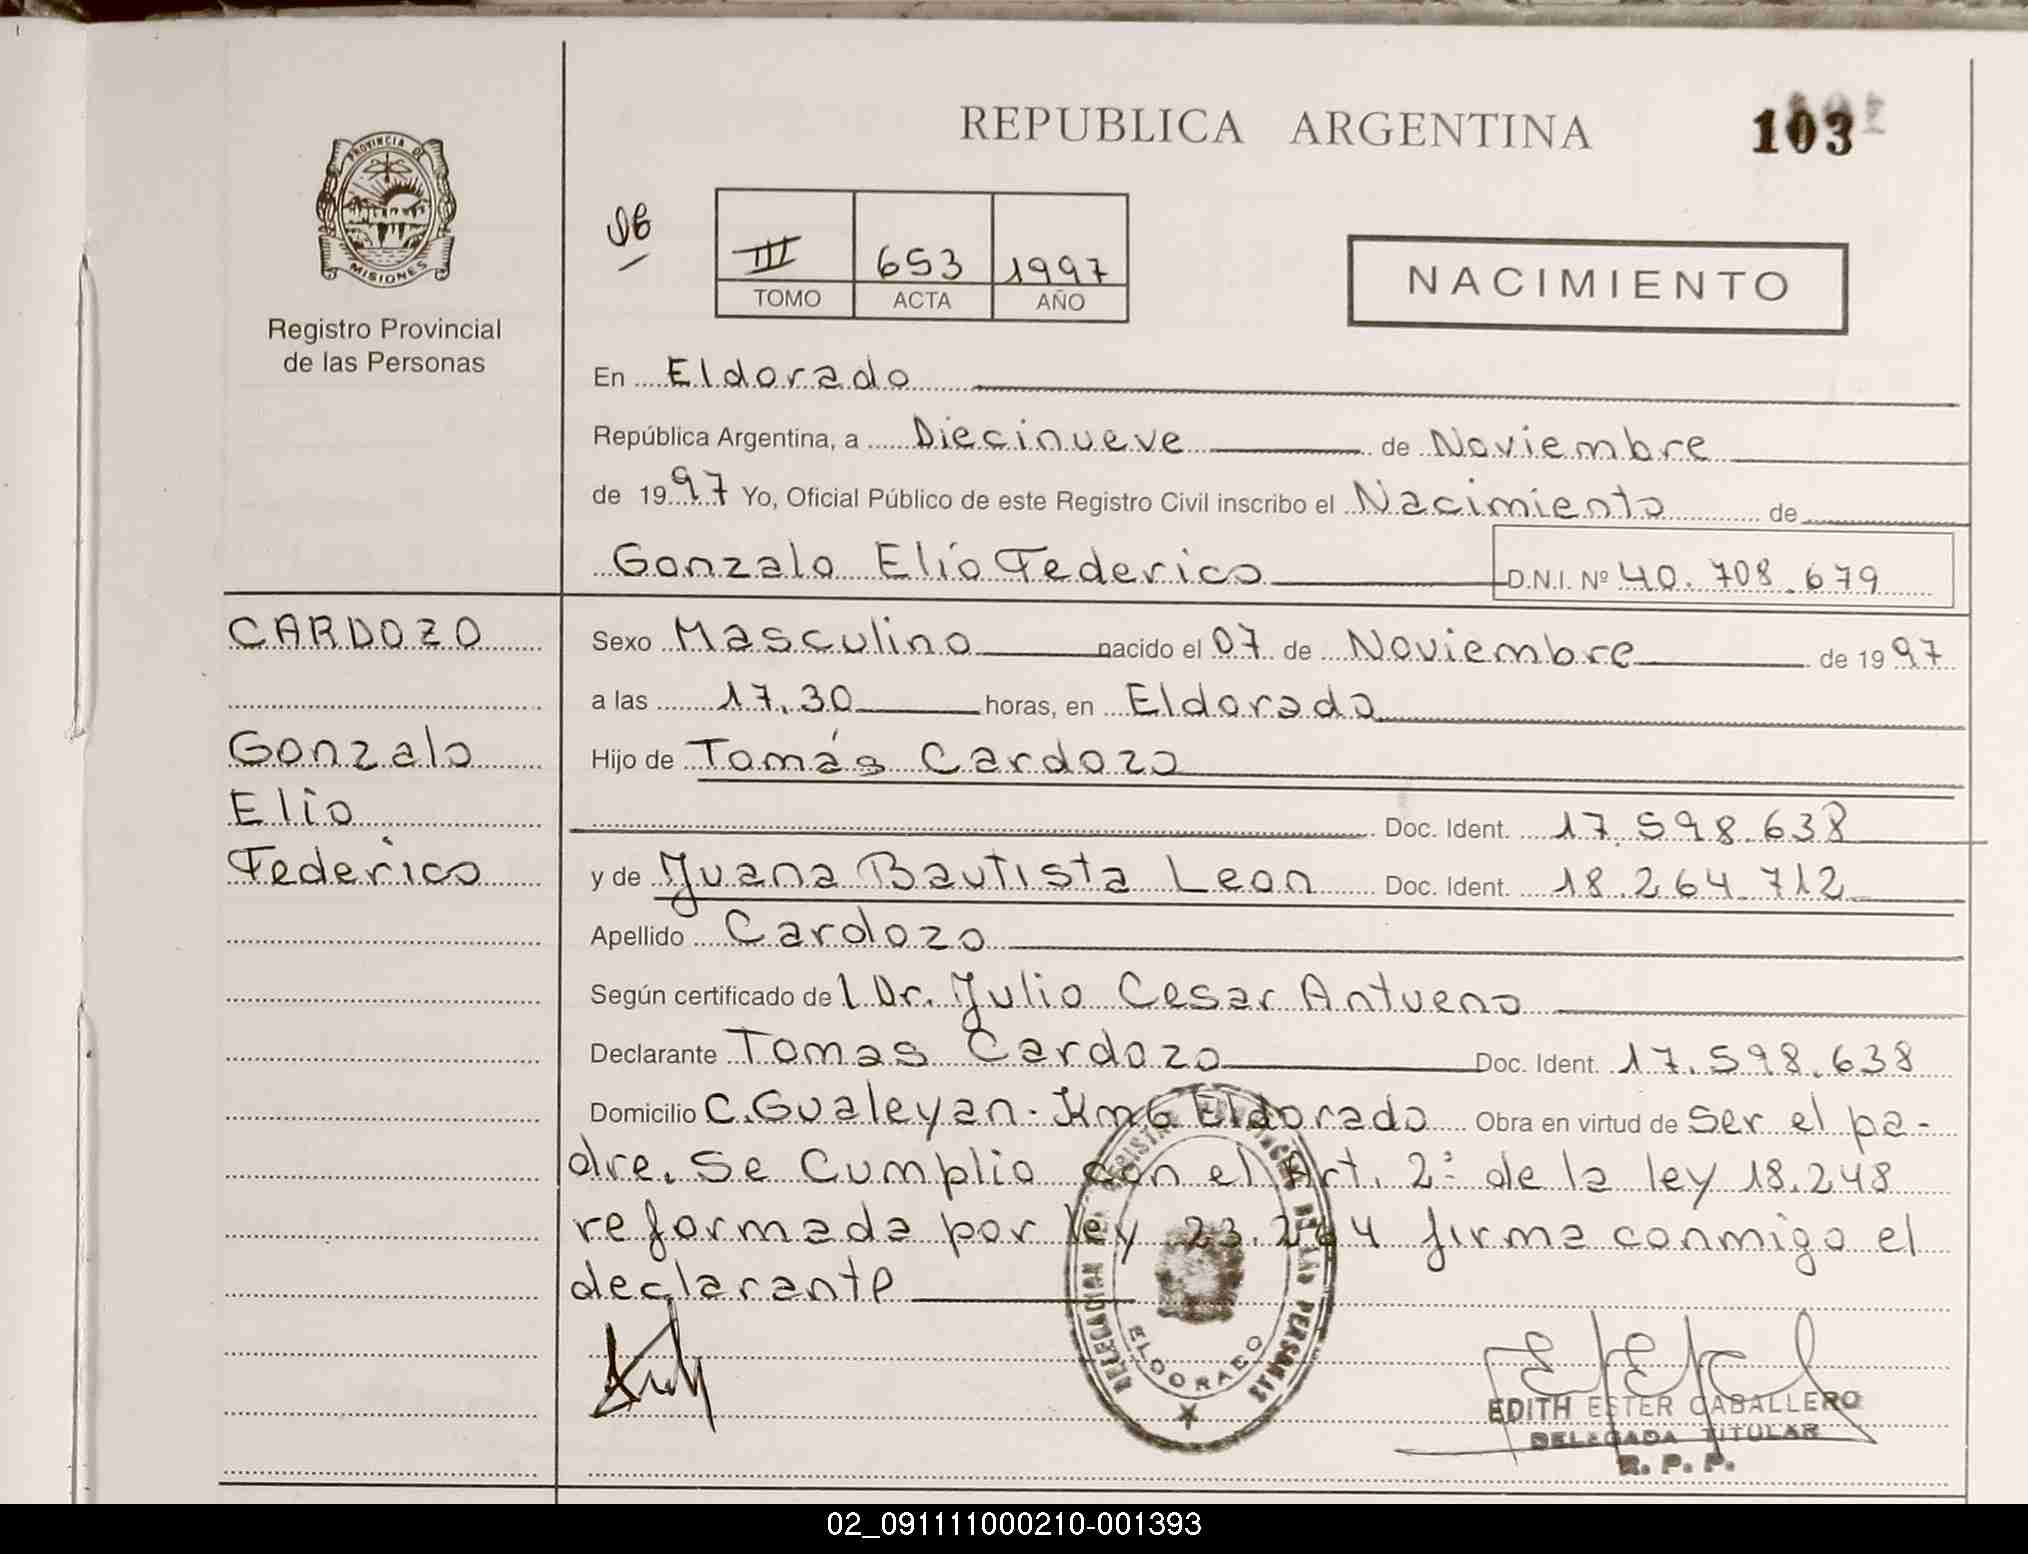 REPUBLICA ARGENTINA
103
PROVINCIA DE
MISIONES
Registro Provincial
de las Personas
III 653 1997
TOMO ACTA AÑO
NACIMIENTO
En Eldorado
República Argentina, a Diecinueve de Noviembre
de 1997 Yo, Oficial Público de este Registro Civil inscribo el Nacimiento de
Gonzalo Elío Federico D.N.I. Nº 40.708.679
CARDOZO
Gonzalo
Elio
Federico
Sexo Masculino nacido el 07 de Noviembre de 1997
a las 17.30 horas, en Eldorado
Hijo de Tomás Cardozo
Doc. Ident. 17.598.638
y de Juana Bautista Leon Doc. Ident. 18.264.712
Apellido Cardozo
Según certificado de l Dr. Julio Cesar Antueno
Declarante Tomas Cardozo Doc. Ident. 17.598.638
Domicilio C. Gualeyan - Km 6 Eldorado Obra en virtud de ser el pa-
dre. Se Cumplio con el Art. 2º de la ley 18.248
reformada por ley 23.264 firma conmigo el
declarante
DELEGACION DEL REGISTRO PROVINCIAL DE LAS PERSONAS
ELDORADO
EDITH ESTER CABALLERO
DELEGADA TITULAR
R. P. P.
02_091111000210-001393